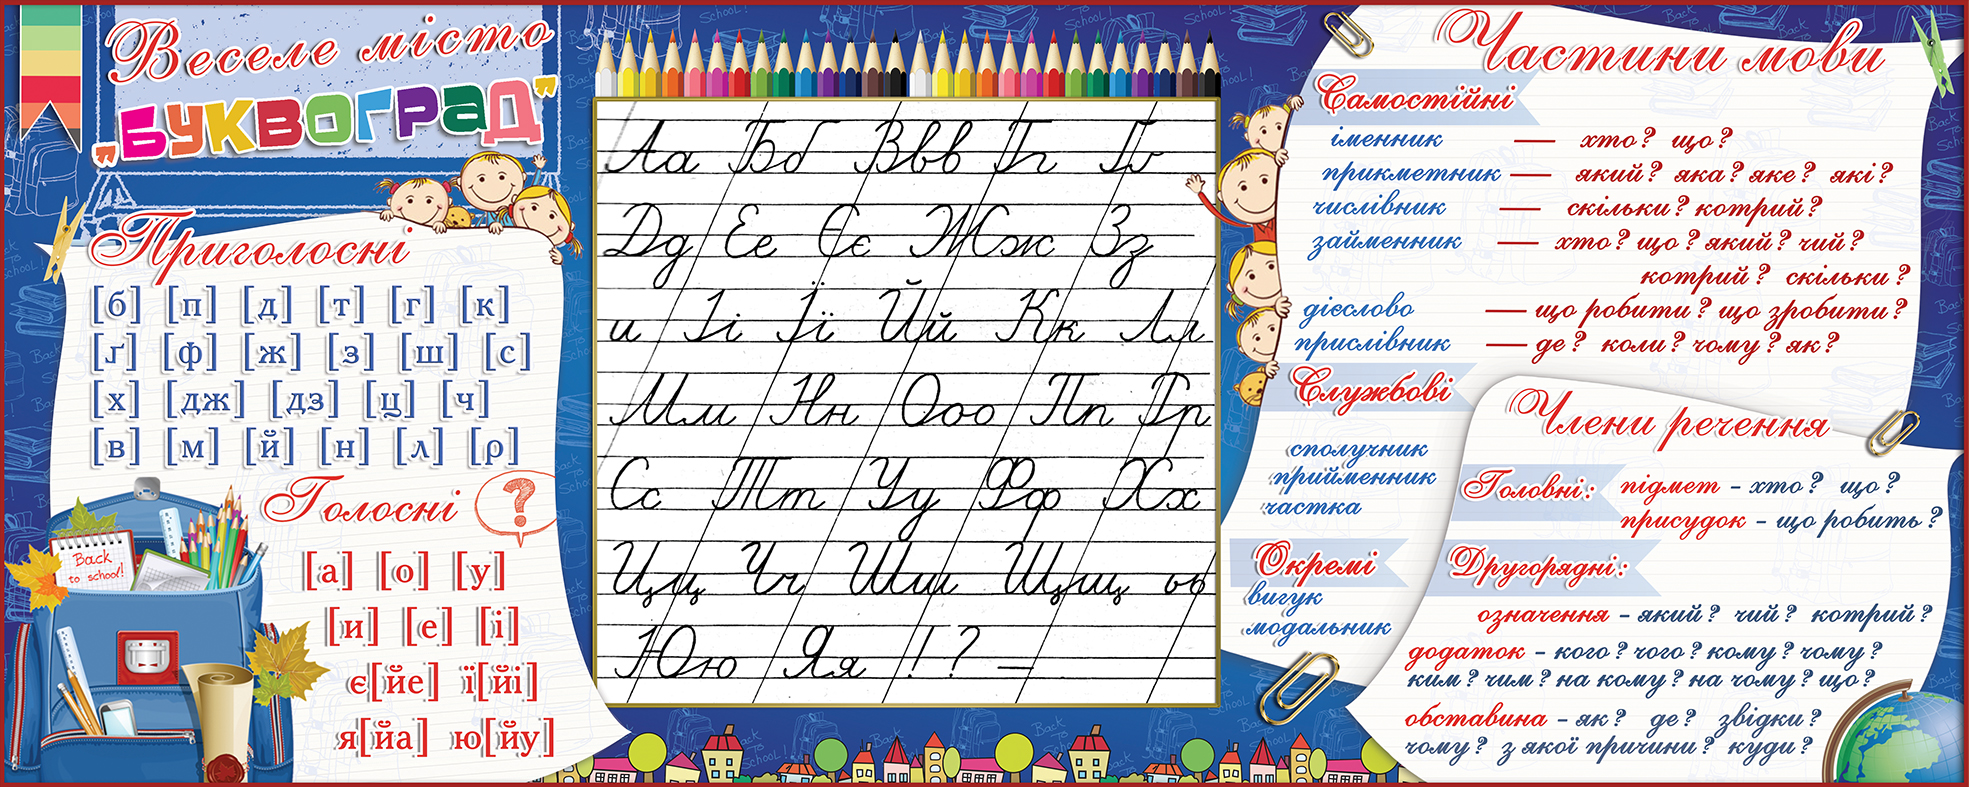 Веселе місто
„Буквоград”
Приголосні
[б] [п] [д] [т] [г] [к]
[ґ] [ф] [ж] [з] [ш] [с]
[х] [дж] [дз] [ц] [ч]
[в] [м] [й] [н] [л] [р]
Голосні
?
[а] [о] [у]
[и] [е] [і]
є[йе] ї[йі]
я[йа] ю[йу]
Back
to school!
Аа Бб Ввв Гг Ґґ
Дд Ее Єє Жж Зз
и Іі Її Йй Кк Лл
Мм Нн Ооо Пп Рр
Сс Тт Уу Фф Хх
Цц Чч Шш Щщ ьь
Юю Яя ! ? —
Частини мови
Самостійні
іменник — хто? що?
прикметник — який? яка? яке? які?
числівник — скільки? котрий?
займенник — хто? що? який? чий?
котрий? скільки?
дієслово — що робити? що зробити?
прислівник — де? коли? чому? як?
Службові
сполучник
прийменник
частка
Окремі
вигук
модальник
Члени речення
Головні: підмет - хто? що?
присудок - що робить?
Другорядні:
означення - який? чий? котрий?
додаток - кого? чого? кому? чому?
ким? чим? на кому? на чому? що?
обставина - як? де? звідки?
чому? з якої причини? куди?